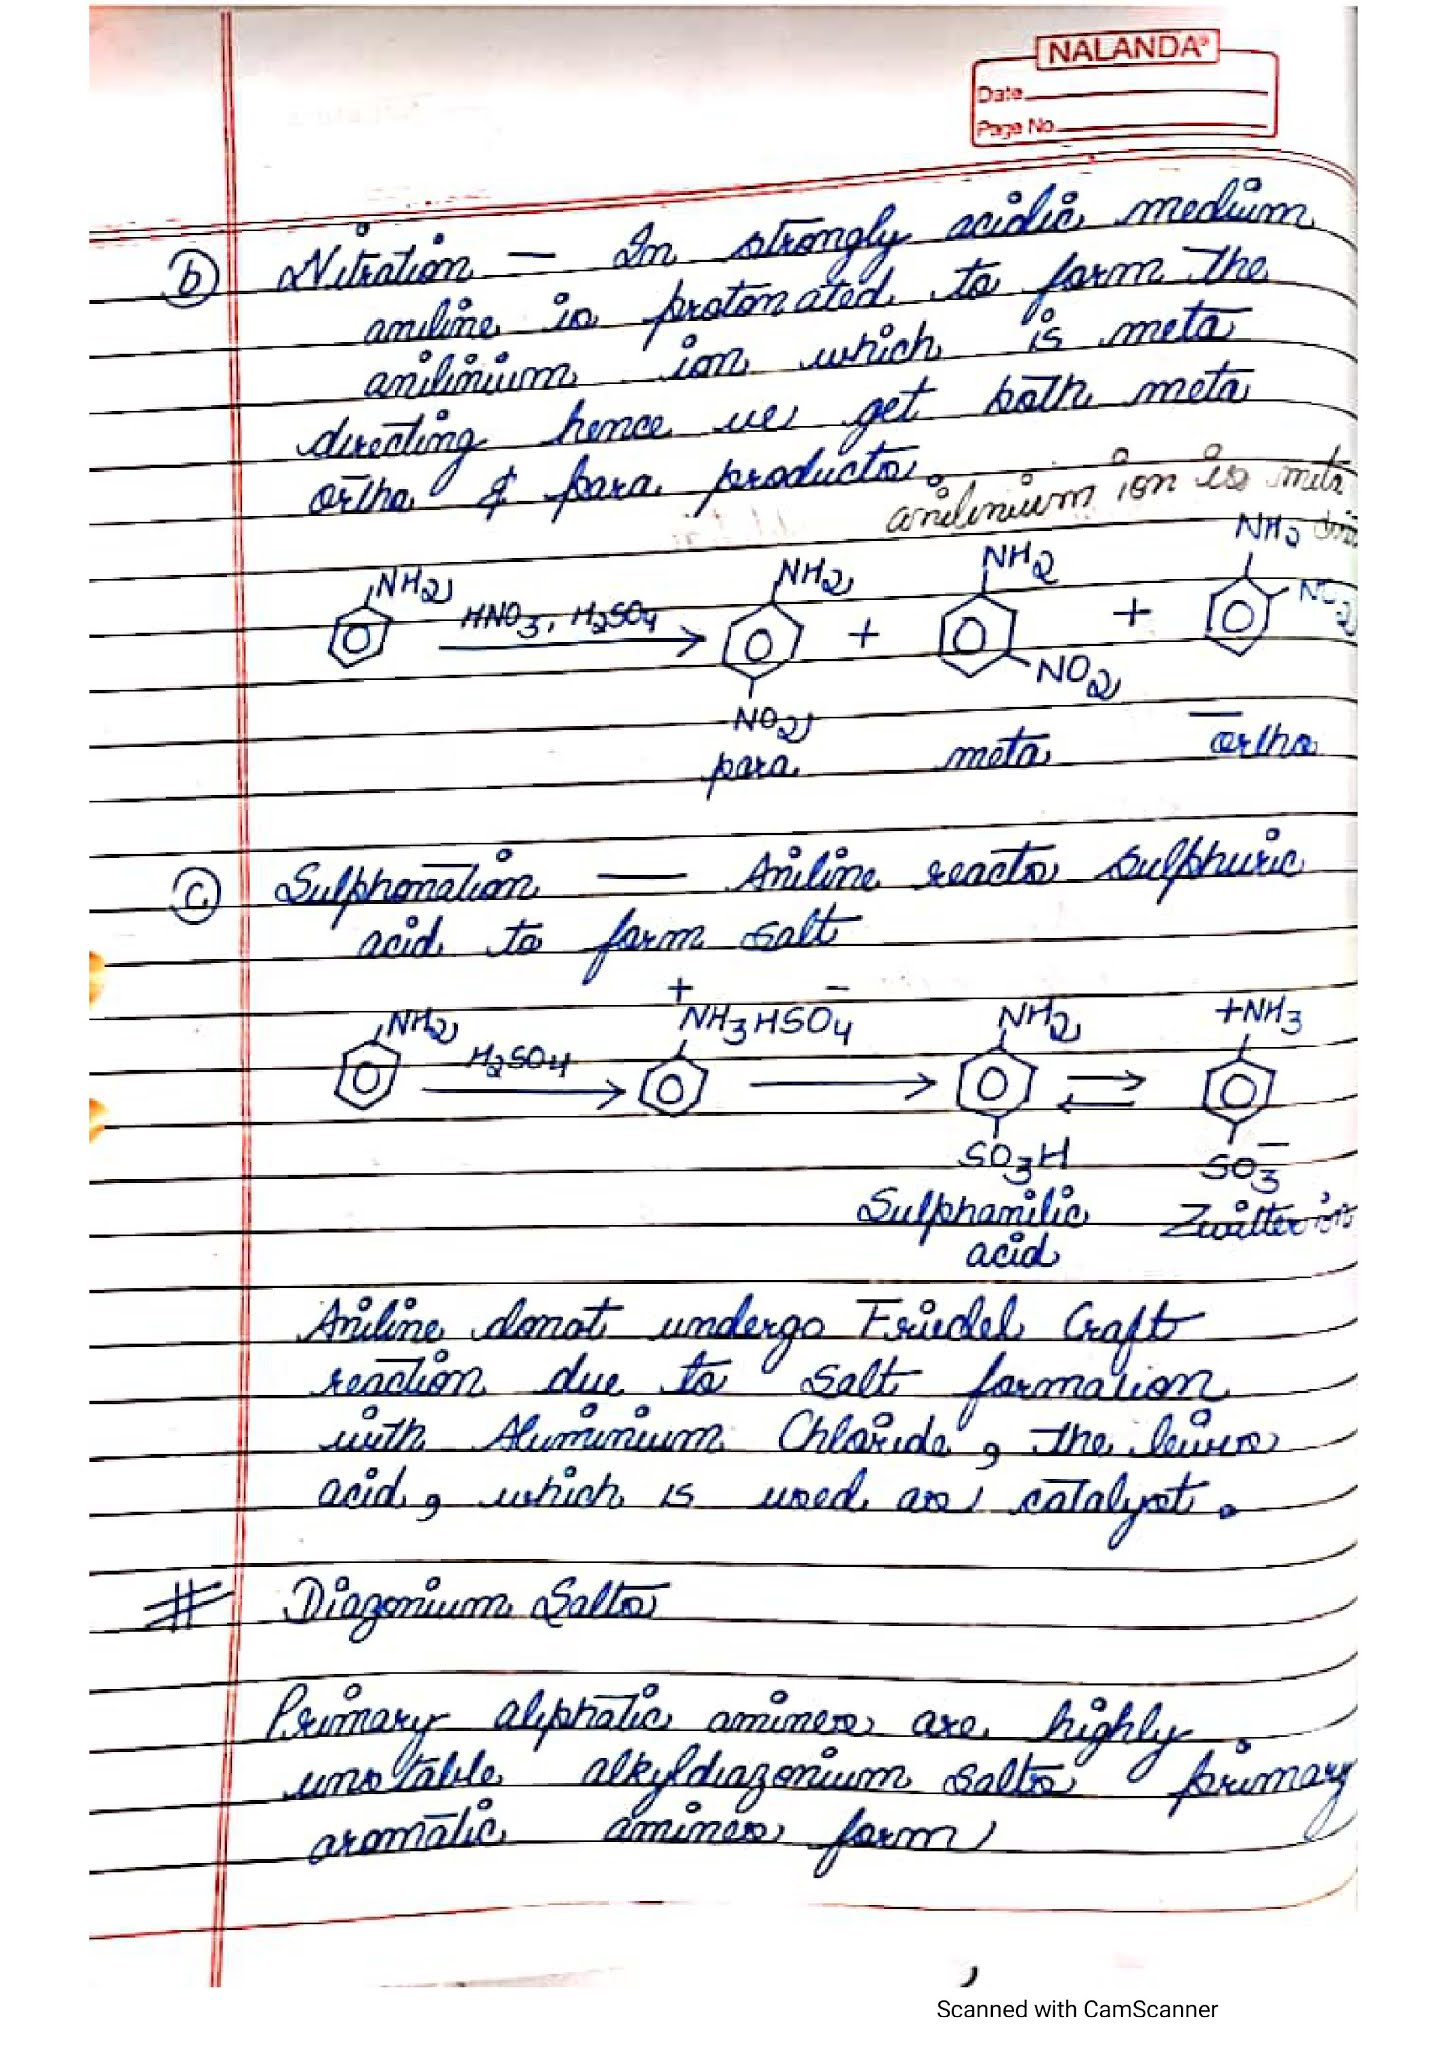 NALANDA®
Date
Page No.
(b) Nitration — In strongly acidic medium
aniline is protonated to form the
anilinium ion which is meta
directing hence we get both meta
ortho & para products.
anilinium ion is meta
NH2 HNO3, H2SO4 NH2 + NH2 + NH2 NO2
NO2 NO2
para meta ortho
(c) Sulphonation — Aniline reacts sulphuric
acid to form salt
NH2 H2SO4 + NH3 HSO4 - NH2 +NH3
SO3H SO3-
Sulphanilic Zwitter ion
acid
Aniline donot undergo Friedel Craft
reaction due to salt formation
with Aluminium Chloride, the lewis
acid, which is used as catalyst.
# Diazonium Salts
Primary aliphatic amines are highly
unstable alkyldiazonium salts primary
aromatic amines form
Scanned with CamScanner